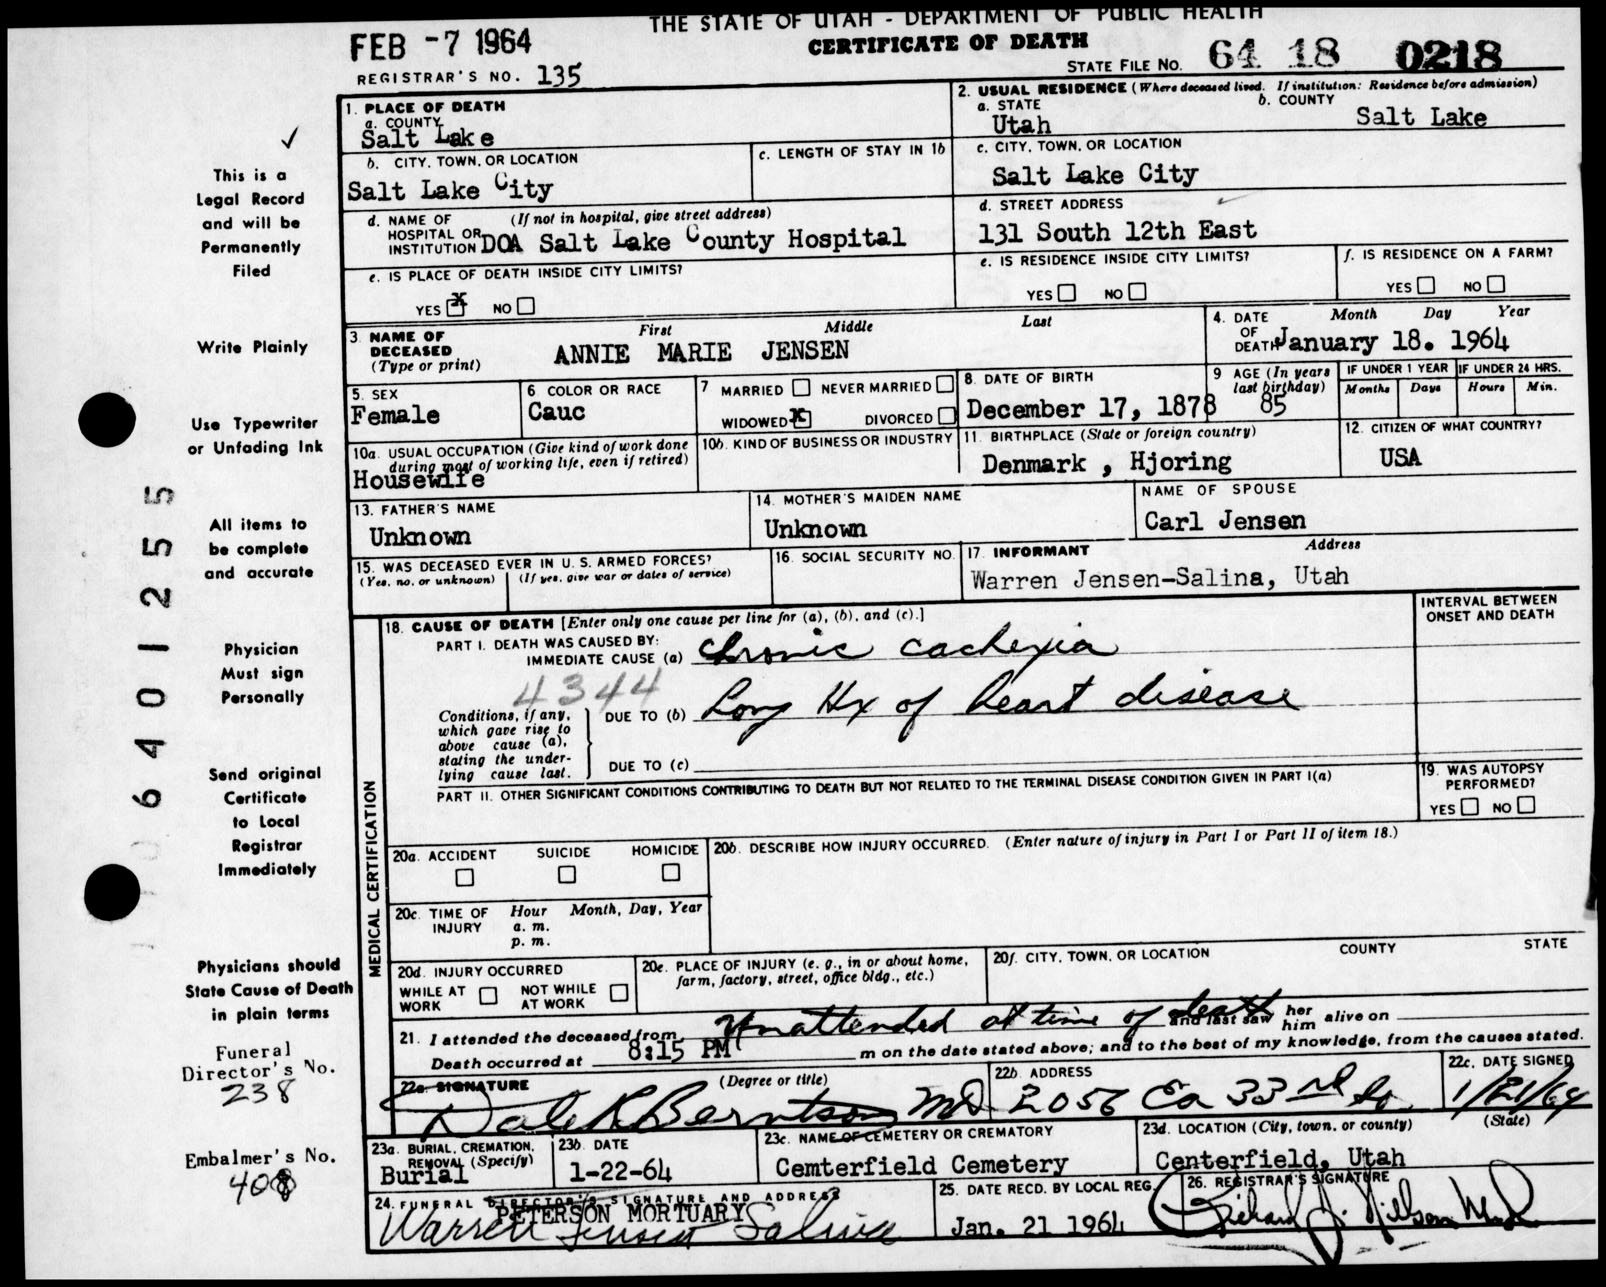 THE STATE OF UTAH - DEPARTMENT OF PUBLIC HEALTH
FEB -7 1964
CERTIFICATE OF DEATH
REGISTRAR'S NO. 135
STATE FILE NO. 64 18 0218
This is a
Legal Record
and will be
Permanently
Filed
Write Plainly
Use Typewriter
or Unfading Ink
All items to
be complete
and accurate
Physician
Must sign
Personally
Send original
Certificate
to Local
Registrar
Immediately
Physicians should
State Cause of Death
in plain terms
Funeral
Director's No.
238
Embalmer's No.
408
06401255
1. PLACE OF DEATH
a. COUNTY
Salt Lake
2. USUAL RESIDENCE (Where deceased lived. If institution: Residence before admission)
a. STATE
Utah
b. COUNTY
Salt Lake
b. CITY, TOWN, OR LOCATION
Salt Lake City
c. LENGTH OF STAY IN 1b
c. CITY, TOWN, OR LOCATION
Salt Lake City
d. NAME OF (If not in hospital, give street address)
HOSPITAL OR
INSTITUTION DOA Salt Lake County Hospital
d. STREET ADDRESS
131 South 12th East
e. IS PLACE OF DEATH INSIDE CITY LIMITS?
YES X NO
e. IS RESIDENCE INSIDE CITY LIMITS?
YES NO
f. IS RESIDENCE ON A FARM?
YES NO
3. NAME OF
DECEASED
(Type or print)
First Middle Last
ANNIE MARIE JENSEN
4. DATE
OF
DEATH
Month Day Year
January 18. 1964
5. SEX
Female
6 COLOR OR RACE
Cauc
7 MARRIED NEVER MARRIED
WIDOWED X DIVORCED
8. DATE OF BIRTH
December 17, 1878
9 AGE (In years
last birthday)
85
IF UNDER 1 YEAR
Months Days
IF UNDER 24 HRS.
Hours Min.
10a. USUAL OCCUPATION (Give kind of work done
during most of working life, even if retired)
Housewife
10b. KIND OF BUSINESS OR INDUSTRY
11. BIRTHPLACE (State or foreign country)
Denmark , Hjoring
12. CITIZEN OF WHAT COUNTRY?
USA
13. FATHER'S NAME
Unknown
14. MOTHER'S MAIDEN NAME
Unknown
NAME OF SPOUSE
Carl Jensen
15. WAS DECEASED EVER IN U. S. ARMED FORCES?
(Yes, no, or unknown) (If yes, give war or dates of service)
16. SOCIAL SECURITY NO.
17. INFORMANT Address
Warren Jensen-Salina, Utah
MEDICAL CERTIFICATION
18. CAUSE OF DEATH [Enter only one cause per line for (a), (b), and (c).]
INTERVAL BETWEEN
ONSET AND DEATH
PART I. DEATH WAS CAUSED BY:
IMMEDIATE CAUSE (a) chronic cachexia
4344
Conditions, if any,
which gave rise to
above cause (a),
stating the under-
lying cause last.
DUE TO (b) Long Hx of heart disease
DUE TO (c)
PART II. OTHER SIGNIFICANT CONDITIONS CONTRIBUTING TO DEATH BUT NOT RELATED TO THE TERMINAL DISEASE CONDITION GIVEN IN PART I(a)
19. WAS AUTOPSY
PERFORMED?
YES NO
20a. ACCIDENT SUICIDE HOMICIDE
20b. DESCRIBE HOW INJURY OCCURRED. (Enter nature of injury in Part I or Part II of item 18.)
20c. TIME OF
INJURY
Hour Month, Day, Year
a. m.
p. m.
20d. INJURY OCCURRED
WHILE AT
WORK
NOT WHILE
AT WORK
20e. PLACE OF INJURY (e. g., in or about home,
farm, factory, street, office bldg., etc.)
20f. CITY, TOWN, OR LOCATION COUNTY STATE
21. I attended the deceased from Unattended at time of death and last saw her him alive on
Death occurred at 8:15 PM m on the date stated above; and to the best of my knowledge, from the causes stated.
22a. SIGNATURE (Degree or title)
Dale R Berntson MD
22b. ADDRESS
2056 Ea 33rd So.
22c. DATE SIGNED
1/21/64
23a. BURIAL, CREMATION,
REMOVAL (Specify)
Burial
23b. DATE
1-22-64
23c. NAME OF CEMETERY OR CREMATORY
Cemterfield Cemetery
23d. LOCATION (City, town, or county) (State)
Centerfield, Utah
24. FUNERAL DIRECTOR'S SIGNATURE AND ADDRESS
PETERSON MORTUARY
Warren Jensen Salina
25. DATE RECD. BY LOCAL REG.
Jan. 21 1964
26. REGISTRAR'S SIGNATURE
Richard J. Nilson